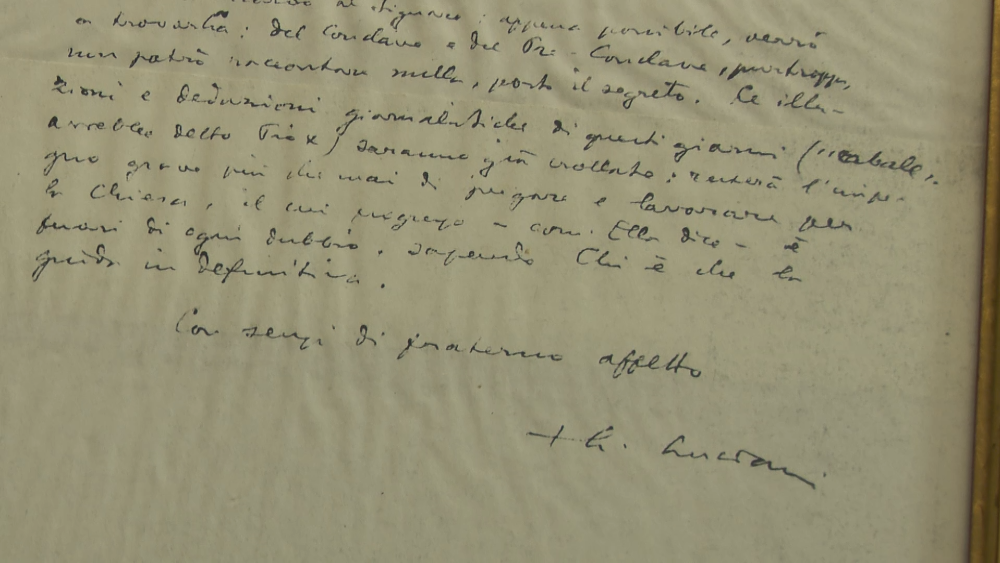 al Signore; appena possibile, verrò
a trovarla; del Conclave e del Pre-Conclave, purtroppo,
non potrò raccontare nulla, posto il segreto. Le illa-
zioni e deduzioni giornalistiche di questi giorni ("cabale",
avrebbe detto Pio X) saranno già crollate; resterà l'impe-
gno grave più che mai di pregare e lavorare per
la Chiesa, il cui progresso - come Ella dice - è
fuori di ogni dubbio, sapendo Chi è che la
guida in definitiva.
Con sensi di fraterno affetto
+ A. Luciani